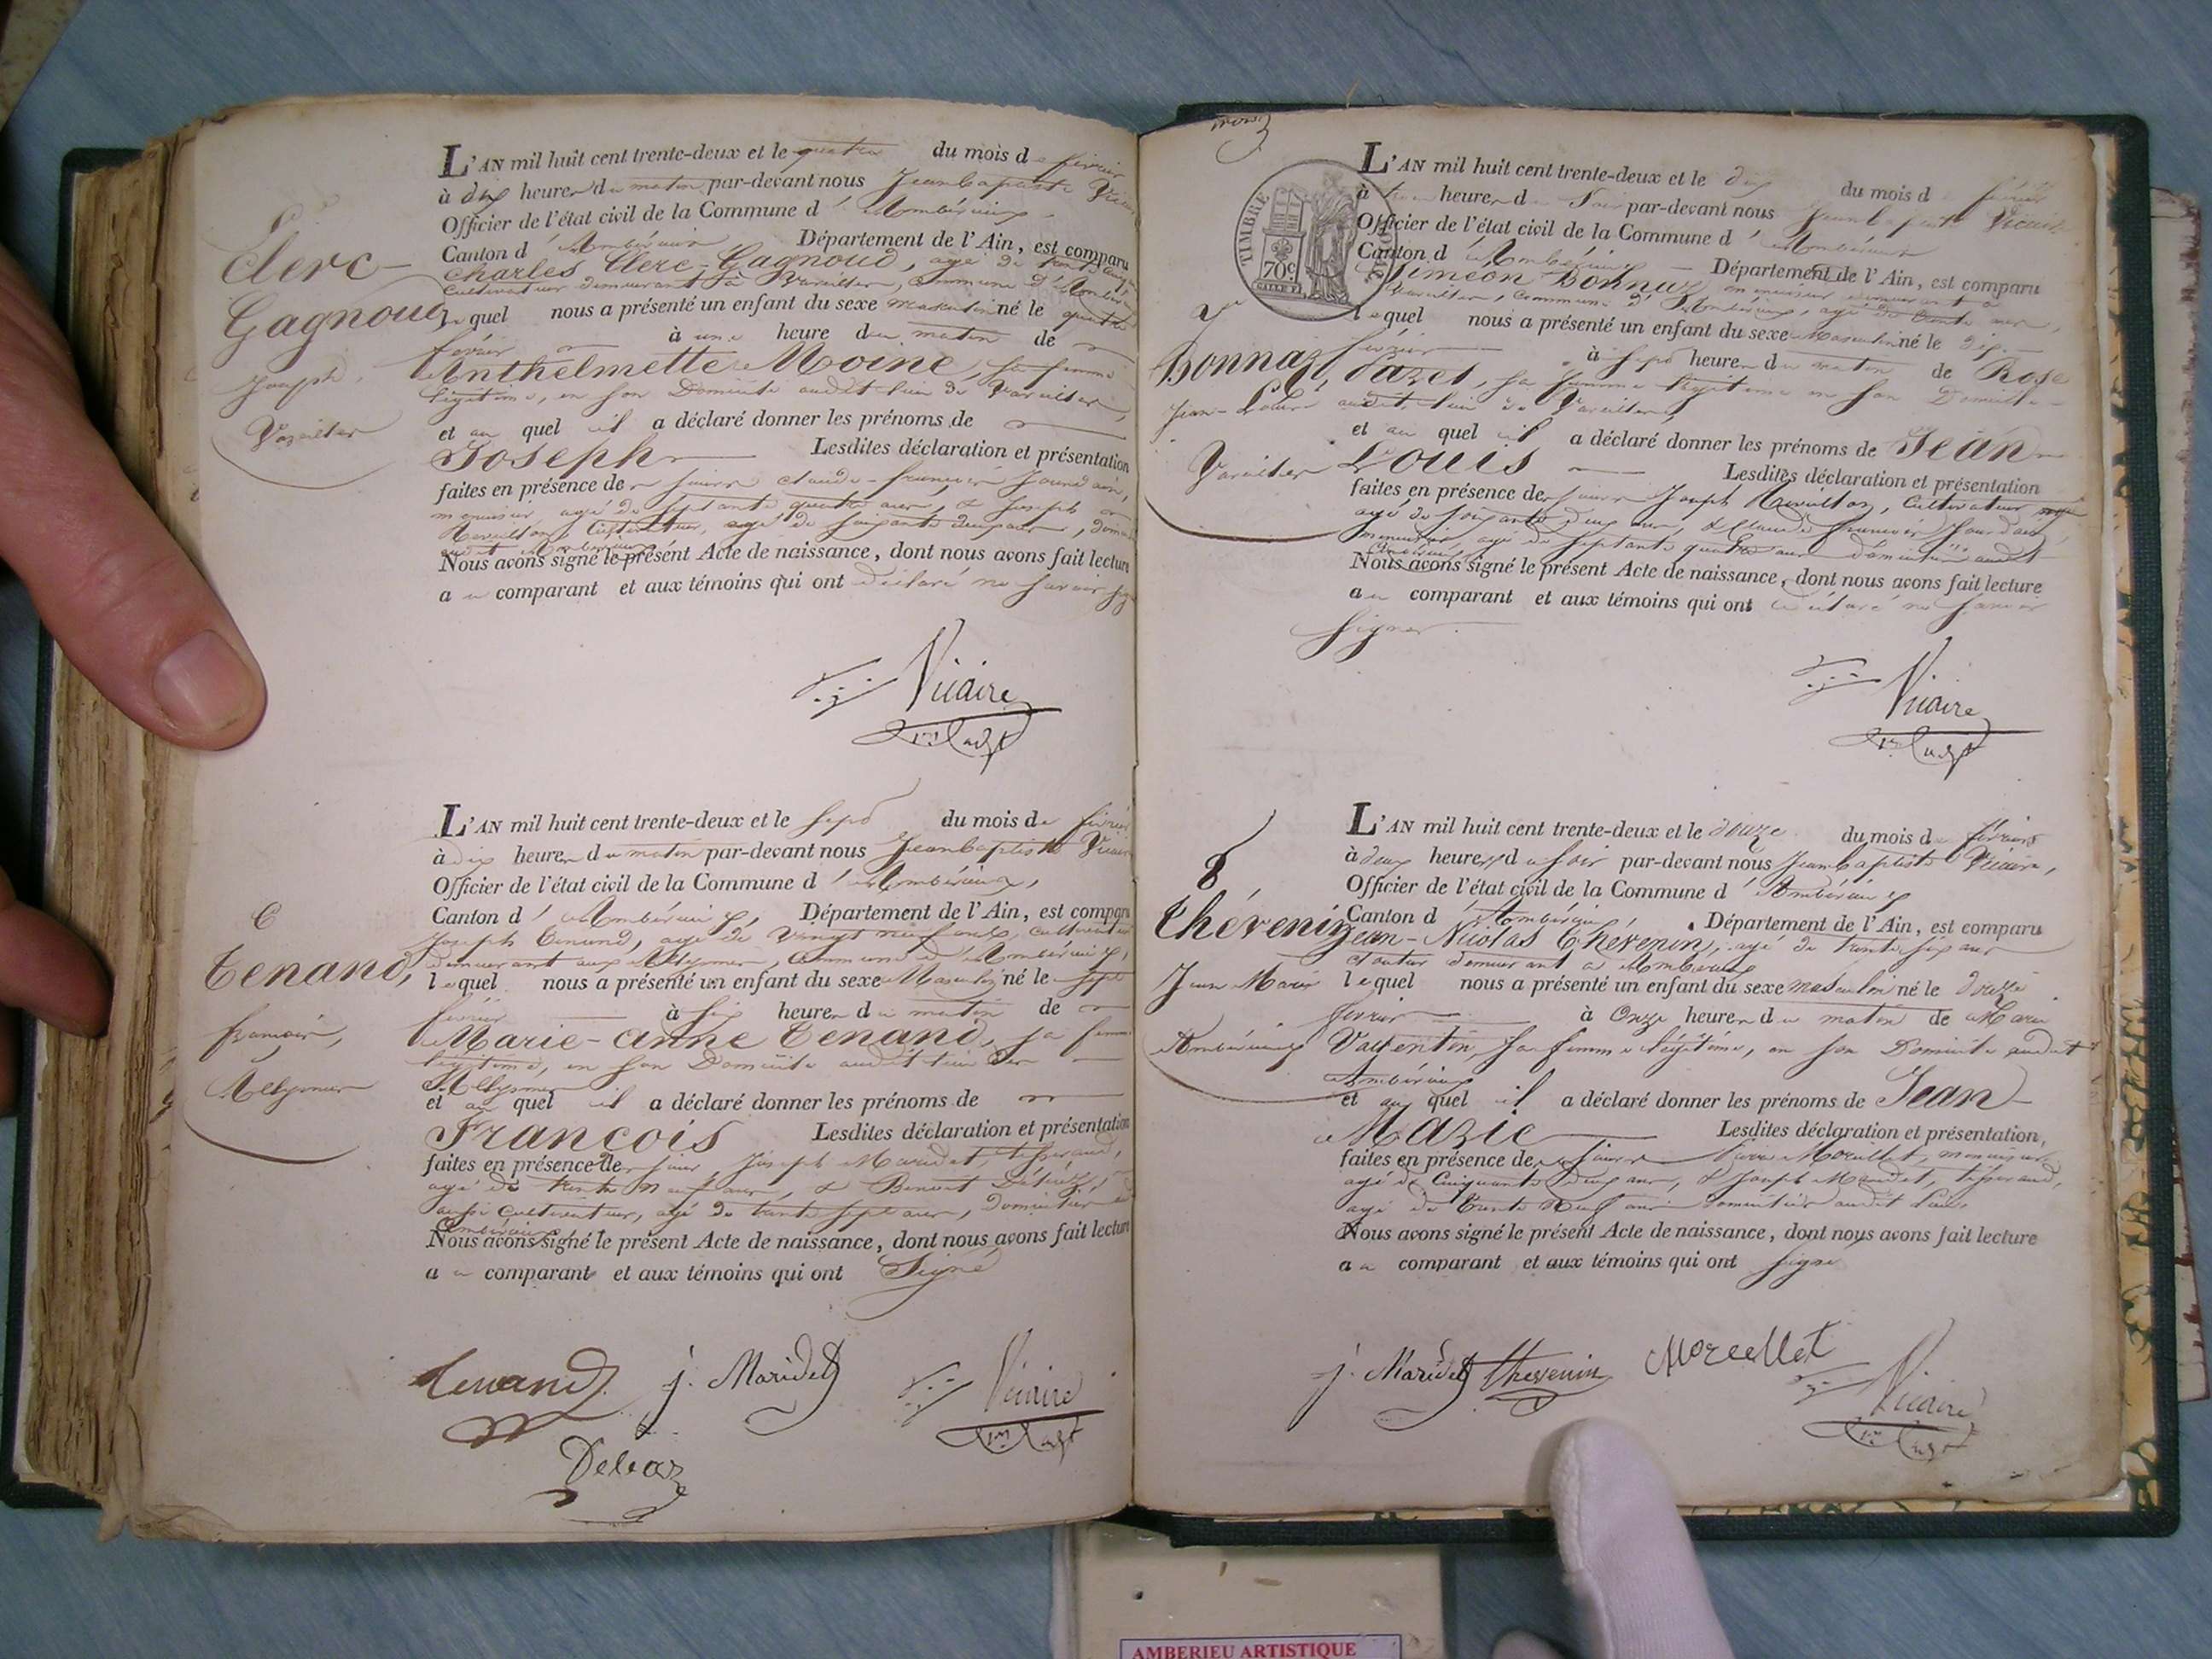 L'AN mil huit cent trente-deux et le quatre du mois de février
à dix heures du matin par-devant nous Jean Baptiste
Officier de l'état civil de la Commune d'Ambérieux
Canton d'Ambérieux Département de l'Ain, est comparu
Charles Clerc-Gagnoud, agé de
cultivateur demeurant à Vareilles, commune d'
lequel nous a présenté un enfant du sexe masculin né le quatre
février à une heure du matin de
Anthelmette Moine, sa femme
légitime, en son Domicile audit lieu de Vareilles,
et au quel il a déclaré donner les prénoms de
Joseph Lesdites déclaration et présentation
faites en présence des sieurs Claude-François Jourdain,
menuisier, agé de septante quatre ans, & Joseph
cultivateur, agé de soixante deux ans,
Nous avons signé le présent Acte de naissance, dont nous avons fait lecture
au comparant et aux témoins qui ont déclaré ne savoir
Vicaire
Clerc-
Gagnoud
Joseph.
Vareilles
L'AN mil huit cent trente-deux et le sept du mois de février
à dix heures du matin par-devant nous Jean Baptiste Vicaire
Officier de l'état civil de la Commune d'Ambérieux,
Canton d'Ambérieux, Département de l'Ain, est comparu
Joseph Tenand, agé de vingt neuf ans, cultivateur
demeurant aux Allymes, Commune d'Ambérieux,
lequel nous a présenté un enfant du sexe Masculin né le sept
février à six heures du matin de
Marie-anne Tenand, sa femme
légitime, en son Domicile audit lieu des
Allymes
et au quel il a déclaré donner les prénoms de
François Lesdites déclaration et présentation
faites en présence des sieurs Joseph Maridet, tisserand,
agé de trente neuf ans, & Benoit
cultivateur, agé de trente sept ans,
Nous avons signé le présent Acte de naissance, dont nous avons fait lecture
au comparant et aux témoins qui ont Signé
Tenand j. Maridet Vicaire
6
Tenand,
françois,
Allymes
L'AN mil huit cent trente-deux et le dix du mois de février
heures du Soir par-devant nous Jean Baptiste Vicaire
Officier de l'état civil de la Commune d'Ambérieux
Canton d'Ambérieux Département de l'Ain, est comparu
Siméon Bonnaz, menuisier demeurant à
Vareilles, commune d'Ambérieux, agé de trente ans,
lequel nous a présenté un enfant du sexe Masculin né le dix
février à sept heures du matin de Rose
sa femme légitime en son Domicile
audit lieu de Vareilles,
et au quel il a déclaré donner les prénoms de Jean
Louis Lesdites déclaration et présentation
faites en présence des sieurs Joseph cultivateur
agé de soixante deux ans, & Claude François Jourdain,
menuisier, agé de septante quatre ans
Nous avons signé le présent Acte de naissance, dont nous avons fait lecture
au comparant et aux témoins qui ont déclaré ne savoir
signer.
Vicaire
TIMBRE
70c
Bonnaz
Jean-Louis
Vareilles
L'AN mil huit cent trente-deux et le douze du mois de février
à deux heures du soir par-devant nous Jean Baptiste Vicaire,
Officier de l'état civil de la Commune d'Ambérieux
Canton d'Ambérieux, Département de l'Ain, est comparu
Jean-Nicolas Thévenin, agé de trente six ans
demeurant à Ambérieux
lequel nous a présenté un enfant du sexe masculin né le douze
février à Onze heures du matin de Marie
sa femme légitime, en son Domicile audit
Ambérieux
et au quel il a déclaré donner les prénoms de Jean
Marie Lesdites déclaration et présentation,
faites en présence des sieurs Morellet, menuisier
agé de Cinquante deux ans, & Joseph Maridet, tisserand,
agé de trente neuf ans domiciliés audit lieu.
Nous avons signé le présent Acte de naissance, dont nous avons fait lecture
au comparant et aux témoins qui ont signé
j. Maridet Thevenin Morellet Vicaire
8
Thévenin
Jean Marie
Ambérieux
AMBERIEU ARTISTIQUE